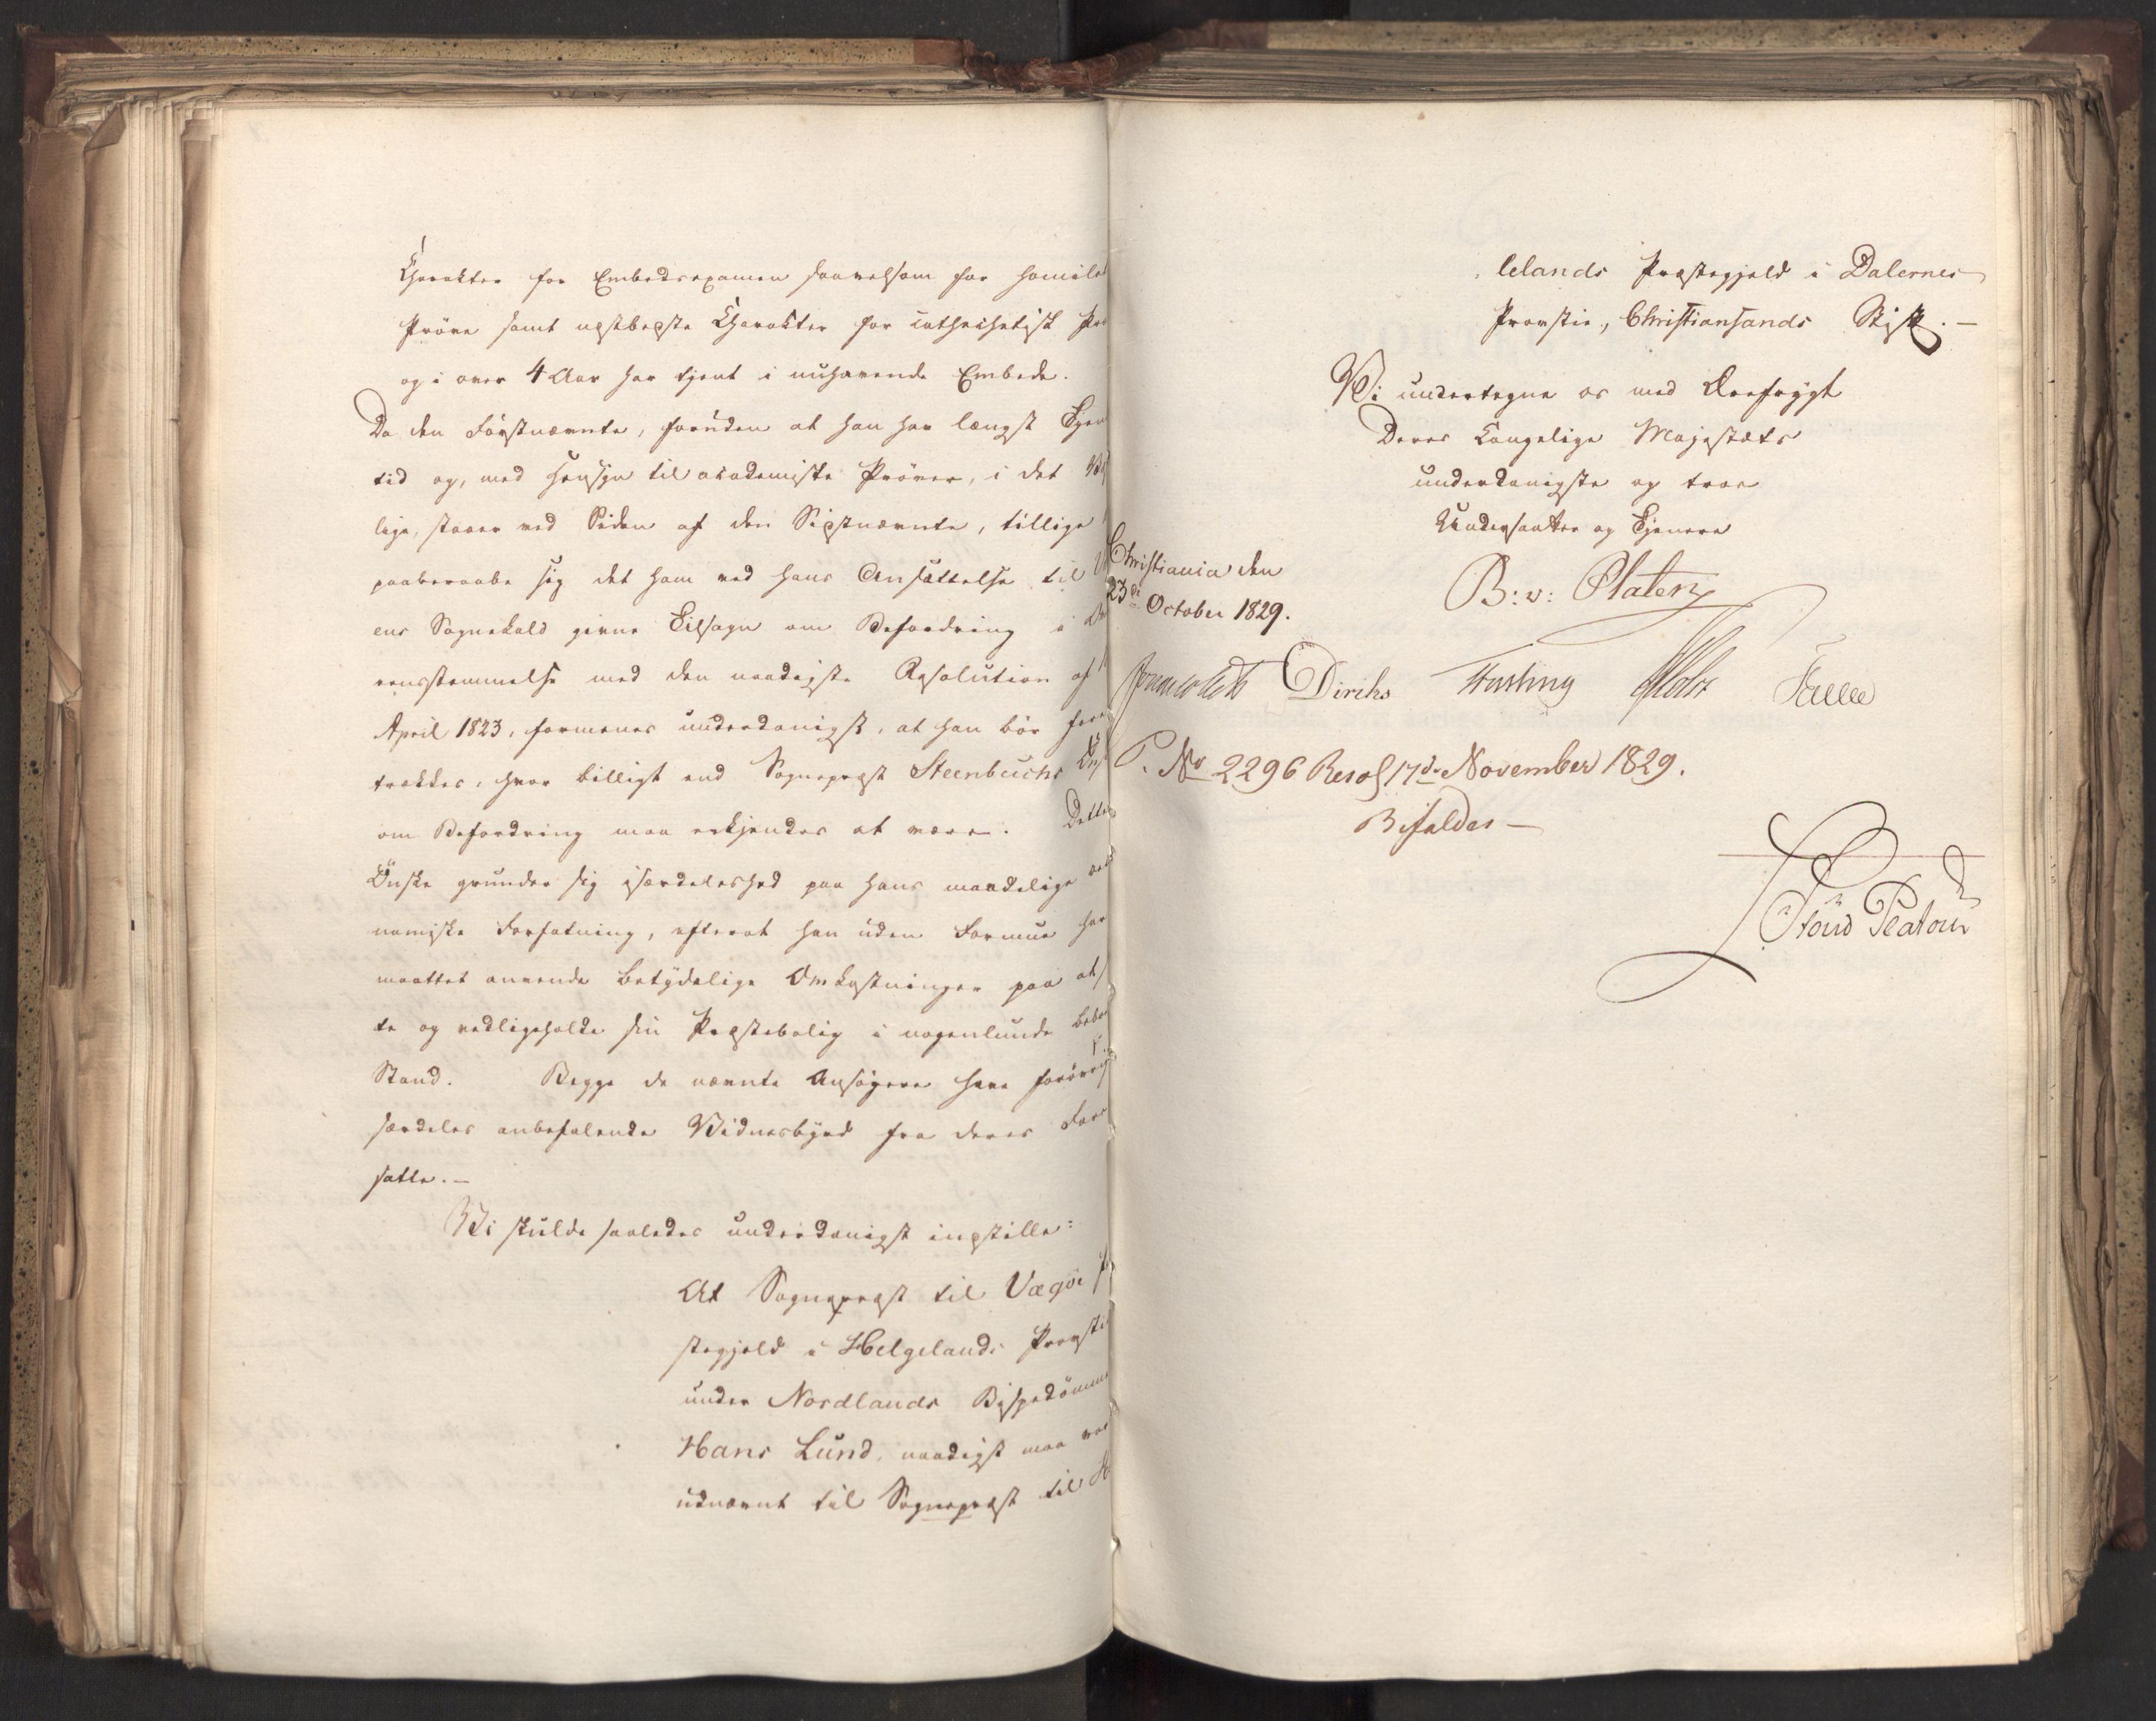 Charakter for Embedsexamen saavelsom for homilet
Pröve samt næstbeste Charakter for cathechetisk Prö
og i over 4 Aar har tjent i nuhavende Embede.
Da den Förstnævnte, foruden at han har længst Tjene
tid og, med Hensyn til akademiske Pröver, i det Væs
lige, staaer ved Siden af den Sidstnævnte, tillige
paaberaabe sig det ham ved hans Ansættelse til
ens Sognekald givne Tilsagn om Befordring i
eensstemmelse med den naadigste Resolution af
April 1823, formenes underdanigst, at han bör fore
trækkes, hvor billigt end Sognepræst Steenbuchs Øns
om Befordring maa erkjendes at være. Dette
Önske grunder sig isærdeleshed paa hans maadelige oeko
nomiske Forfatning, efterat han uden Formue har
maattet anvende betydelige Omkostninger paa at
te og vedligeholde sin Præstebolig i nogenlunde beboe
Stand. Begge de nævnte Ansögere have forövrigt
særdeles anbefalende Vidnesbyrd fra deres Fore
satte.-
Vi skulde saaledes underdanigst indstille:
At Sognepræst til Vægöe Præ
stegjeld i Helgelands Provsti
under Nordlands Bispedömme
Hans Lund, naadigst maa vor
udnævnt til Sognepræst til H
lelands Præstegjeld i Dalernes
Provstie, Christiansands Stift.-
Vi undertegne os med Ærefrygt
Deres Kongelige Majestæts
underdanigste og troe
Undersaatter og Tjenere
Christiania den
23de October 1829.
B: v: Platen
Diriks Fasting Falle
P. No 2296 Resol 17de November 1829.
Bifaldes-